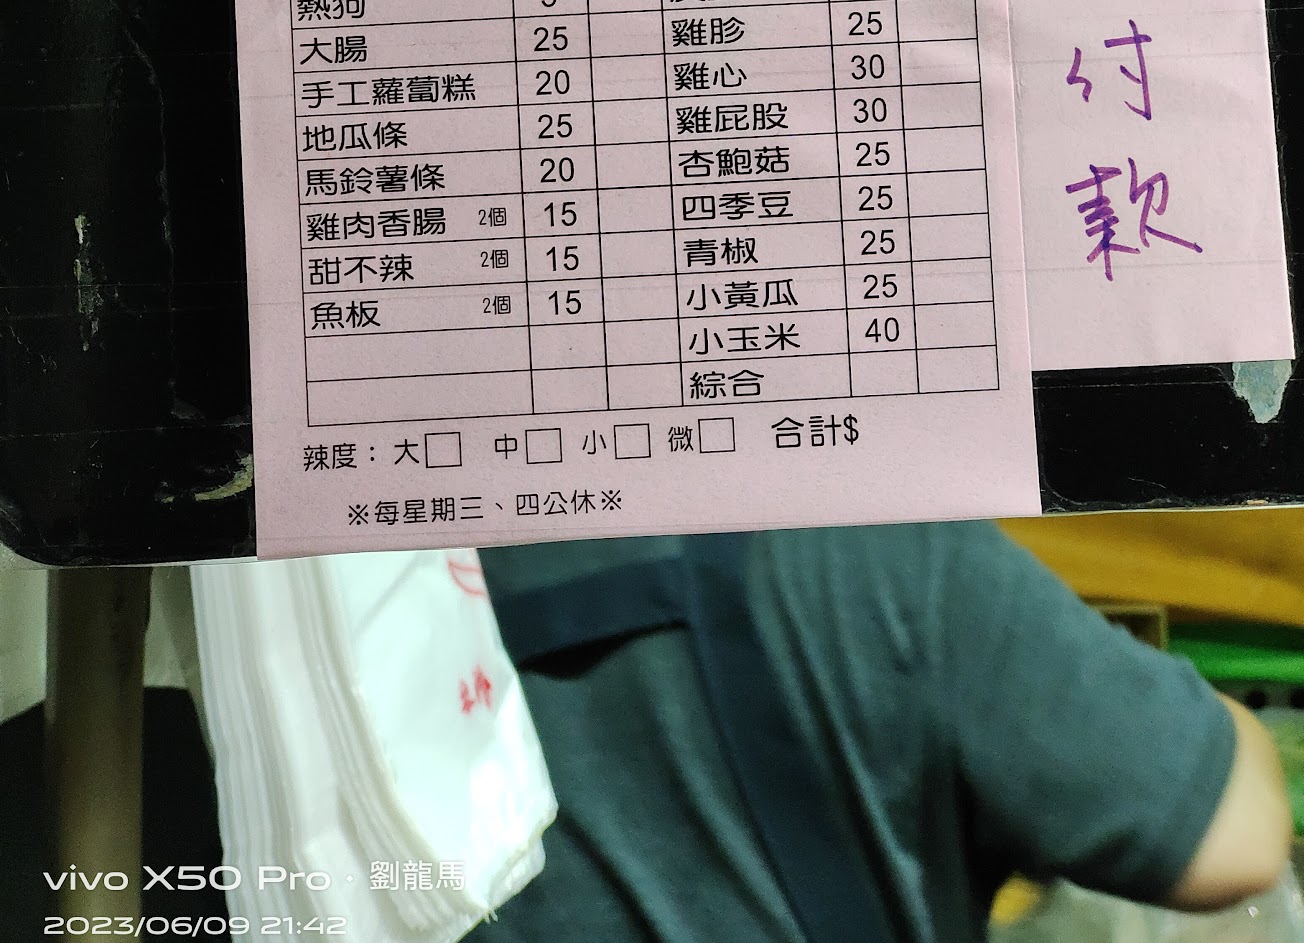 熱狗
大腸 25 雞胗 25
手工蘿蔔糕 20 雞心 30
地瓜條 25 雞屁股 30
馬鈴薯條 20 杏鮑菇 25
雞肉香腸 2個 15 四季豆 25
甜不辣 2個 15 青椒 25
魚板 2個 15 小黃瓜 25
小玉米 40
綜合
辣度：大□ 中□ 小□ 微□ 合計$
※每星期三、四公休※
付
款
vivo X50 Pro · 劉龍馬
2023/06/09 21:42